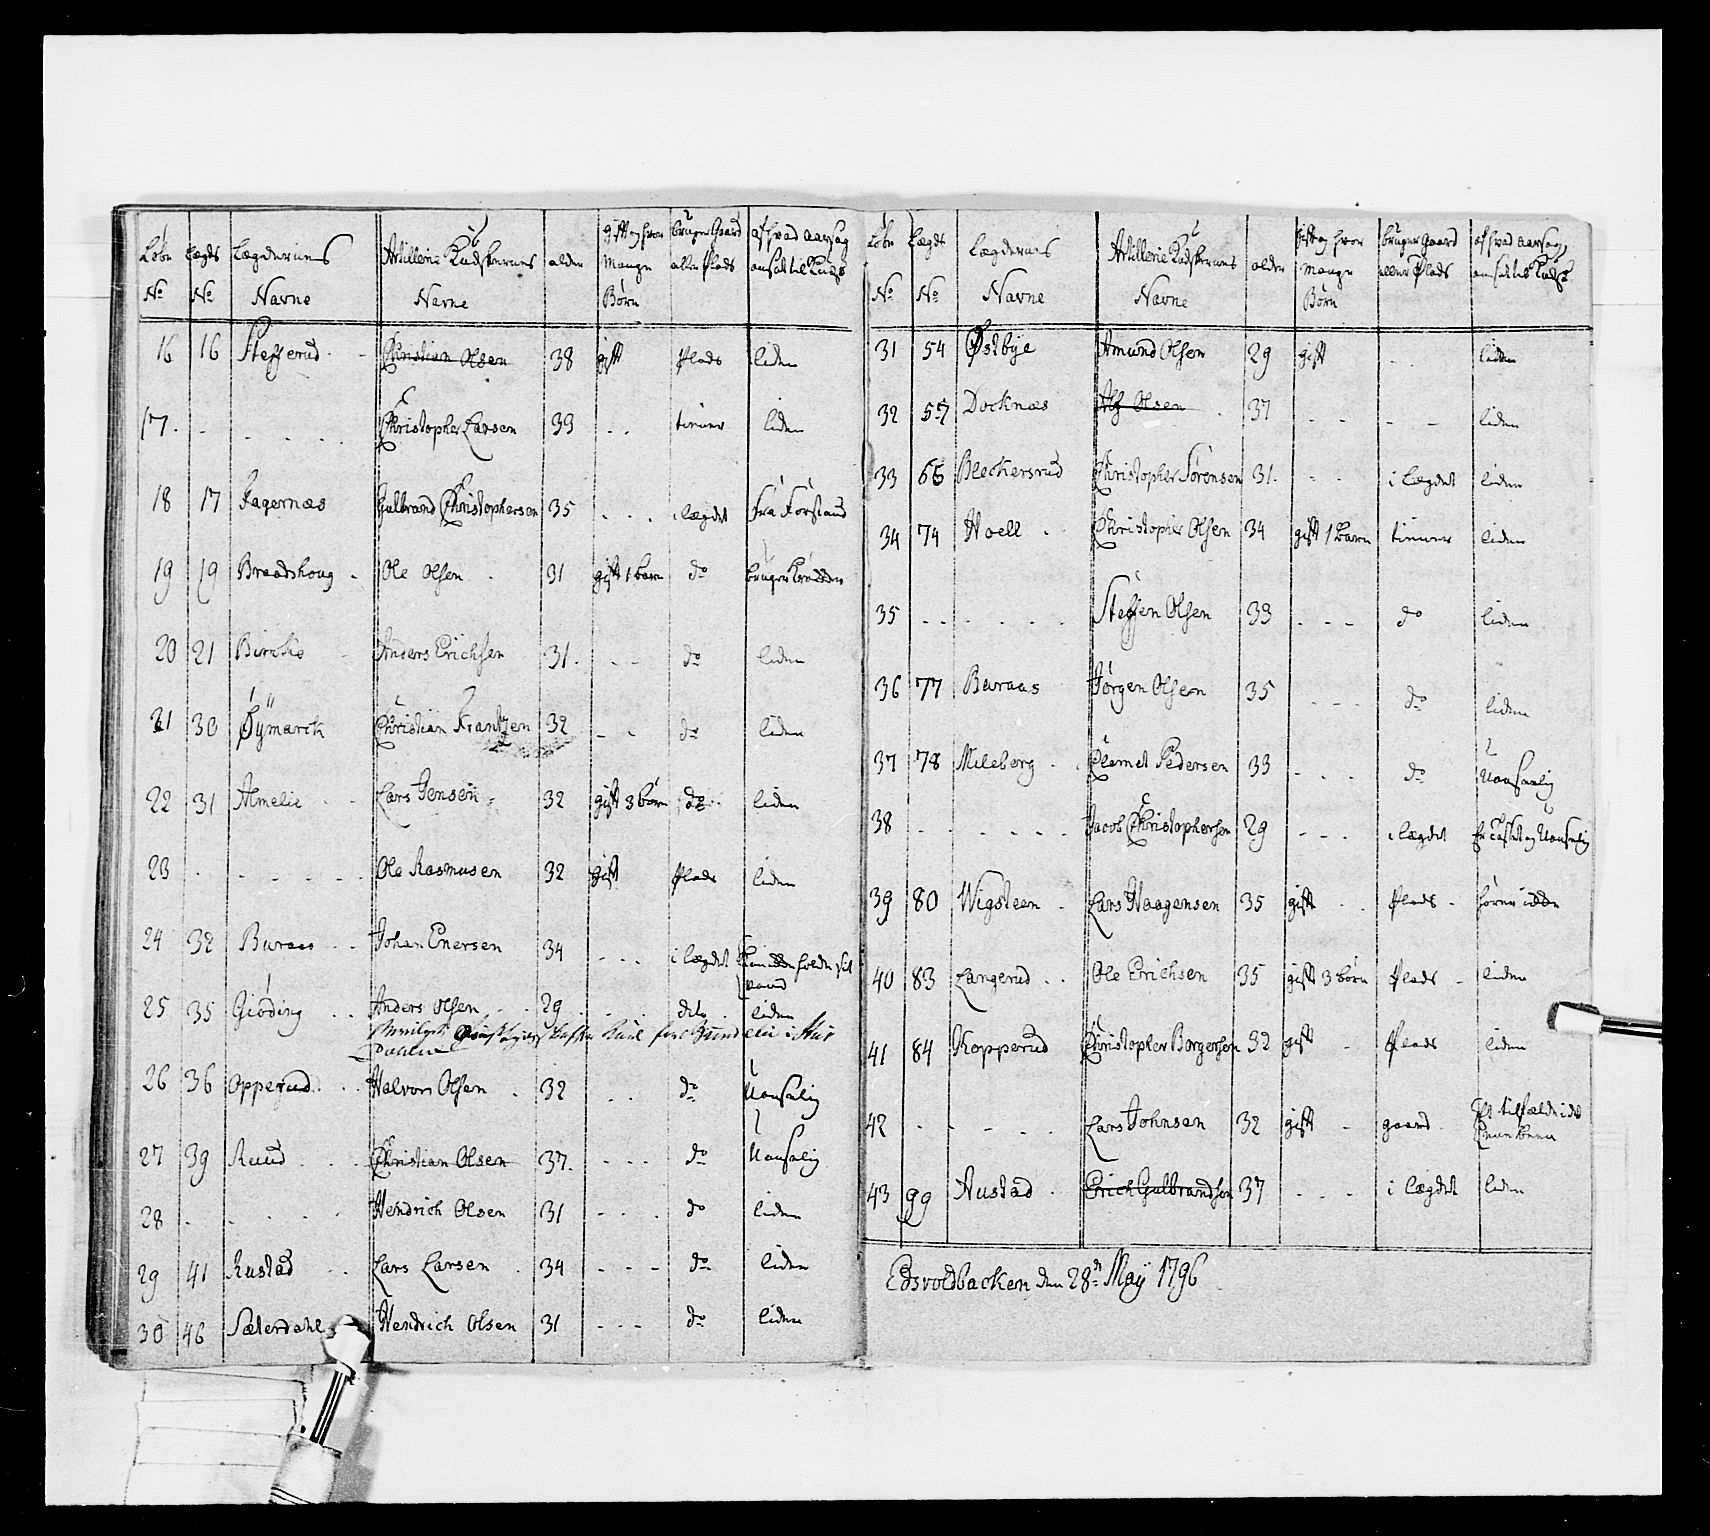 Løbe Lægds Lægdernes Artillerie Kudskernes alder gift og hvor bruger Gaard af hvad aarsag
No No Navne Navne mange eller Plads ansat til Kudsk
Børn
16 16 Stefferud Christian Olsen 38 gift Plads liden
17 Christopher Larsen 33 tiener liden
18 17 Fagernæs Gulbrand Christophersen 35 i lægdet Fra Forstand
19 19 Braadshoug Ole Olsen 31 gift 1 barn do
20 21 Anders Erichsen 31 do liden
21 30 Øÿmarck Christian Frantzen 32 do liden
22 31 Almelie Lars Jensen 32 gift 3 børn do liden
23 Ole Rasmusen 32 gift Plads liden
24 32 Buraas Johan Enersen 34 i lægdet
25 35 Giöding Anders Olsen 29 dito liden
26 36 Opperud Halvor Olsen 32 do Uanselig
27 39 Ruud Christian Olsen 37 do Uanselig
28 Hendrich Olsen 31 do liden
29 41 Rustad Lars Larsen 34 do liden
30 46 Sæterdahl Hendrich Olsen 31 do liden
Løbe Lægds Lægdernes Artillerie Kudskernes alder gift og hvor bruger Gaard af hvad aarsag
No No Navne Navne mange eller Plads ansat til Kudsk
Børn
31 54 Østbÿe Amund Olsen 29 gift liden
32 57 Docknæs Olsen 37 liden
33 66 Bleckersrud Christopher Sørensen 31 i lægdet liden
34 74 Hoell Christopher Olsen 34 gift 1 barn tiener liden
35 Steffen Olsen 33 do liden
36 77 Buraas Jørgen Olsen 35 do liden
37 78 Mileberg Clemet Pedersen 33 do Uanselig
38 Jacob Christophersen 29 i lægdet
39 80 Wigsteen Lars Haagensen 35 gift Plads hører
40 83 Langerud Ole Erichsen 35 gift 3 børn Plads liden
41 84 Kopperud Christopher Borgersen 32 gift Plads liden
42 Lars Johnsen 32 gift gaard
43 99 Austad Erich Gulbrandsen 37 i lægdet liden
Edsvoldbacken den 28de Maÿ 1796